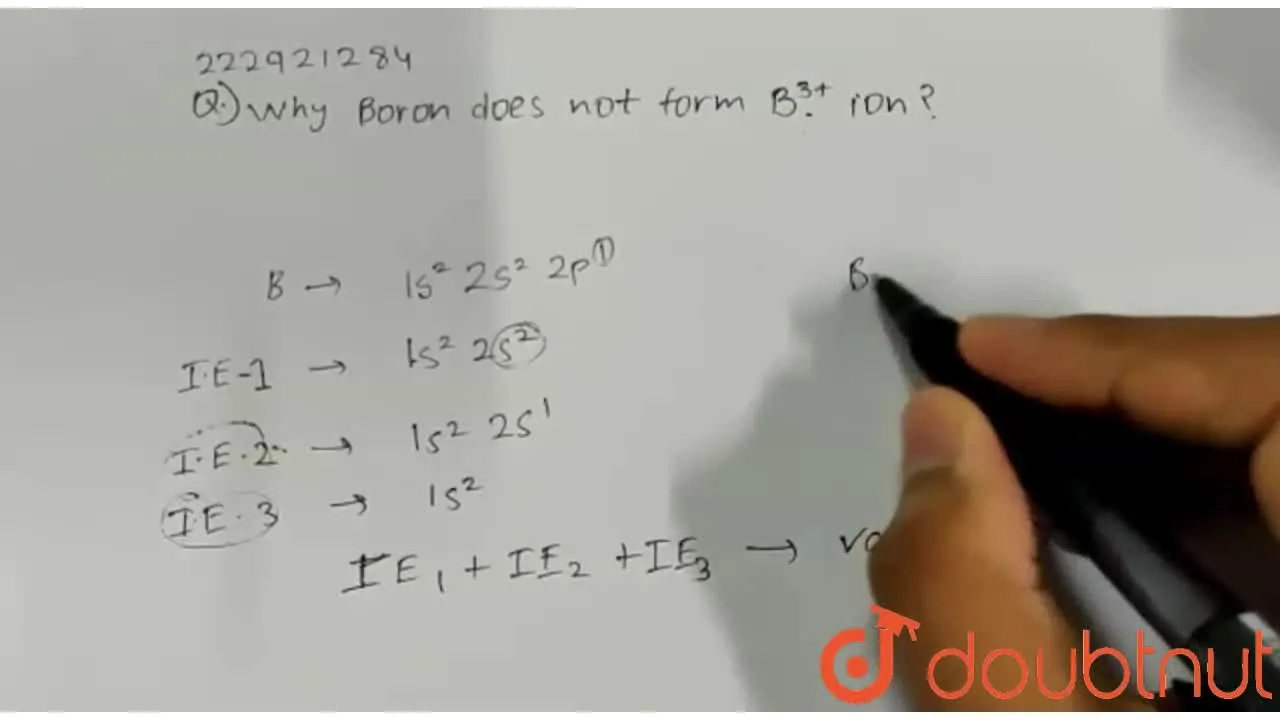 222921284
Q.) Why Boron does not form B³⁺ ion?
B → 1s² 2s² 2p¹
B
I.E-1 → 1s² 2s²
I.E.2 → 1s² 2s¹
I.E.3 → 1s²
IE₁ + IE₂ + IE₃ →
doubtnut